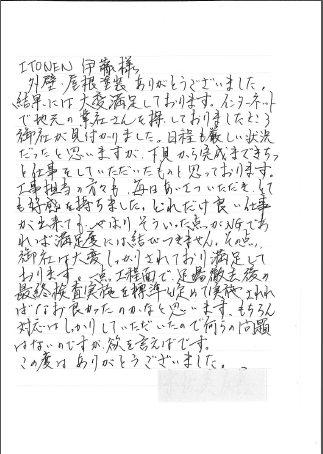 ITONEN 伊藤様
外壁・屋根塗装ありがとうございました。
結果には大変満足しております。インターネット
で地元の業社さんを探しておりましたところ
御社が見つかりました。日程も厳しい状況
だったと思いますが、下見から完成まできちっ
と仕事をしていただいたものと思っております。
工事担当の方々も、毎日あいさついただき、とて
も好感を持ちました。どれだけ良い仕事
が出来ても、やはりそういった点がNGであ
れば満足度には結びつきません。その点、
御社は大変しっかりされており満足して
おります。一点、工程面で、足場撤去後の
最終検査実施を標準と定めて実施されれ
ばなお良かったのかなと思います。もちろん
対応はしっかりしていただいたので何らの問題
はないのですが、欲を言えばです。
この度はありがとうございました。